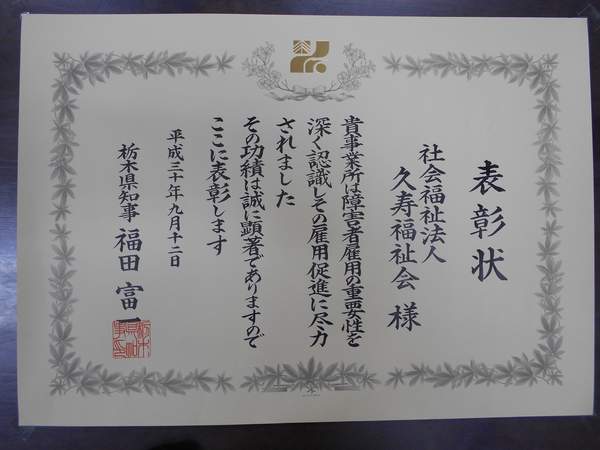 表彰状
社会福祉法人
久寿福祉会 様
貴事業所は障害者雇用の重要性を
深く認識しその雇用促進に尽力
されました
その功績は誠に顕著でありますので
ここに表彰します
平成三十年九月十二日
栃木県知事 福田富一